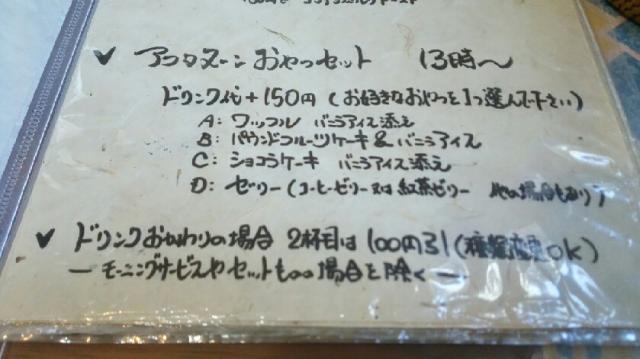 ✓ アフタヌーンおやつセット 13時〜
ドリンク代+150円(お好きなおやつを1つ選んで下さい)
A: ワッフル バニラアイス添え
B: パウンドフルーツケーキ&バニラアイス
C: ショコラケーキ バニラアイス添え
D: ゼリー(コーヒーゼリー又は紅茶ゼリー 他の場合もあり)
✓ ドリンクおかわりの場合 2杯目は100円引(種類変更OK)
ーモーニングサービスやセットものの場合を除くー